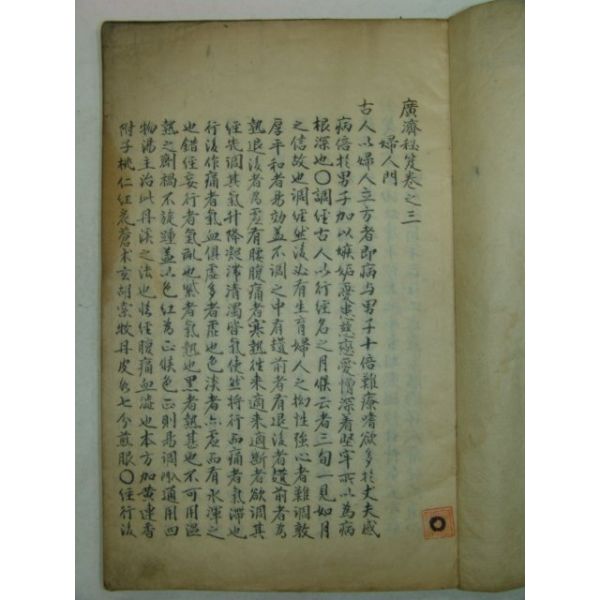 廣濟秘笈卷之三
婦人門
古人以婦人立方者即病与男子十倍難療嗜欲多於丈夫感
病倍於男子加以嫉妬憂恚慈戀愛憎深着堅牢所以為病
根深也〇調經古人以行經名之月候云者三旬一見如月
之信故也調經然後必有生育婦人之拘性強心者難調敦
厚平和者易効盖不調之中有趲前者有退後者趲前者為
熱退後者為虛有腰腹痛者寒熱往來適來適斷者欲調其
經先調其氣升降凝滯清濁皆氣使然將行而痛者氣滯也
行後作痛者氣血俱虛也色淡者亦虛而有水渾之
也錯經妄行者氣亂也紫者氣熱也黑者熱甚也不可用溫
熱之劑禍不旋踵盖以色紅為正候色正則易調通用四
物湯主治此丹溪之法也經腹痛血澁也本方加黃連香
附子桃仁紅花蒼朮玄胡索牧丹皮各七分煎服〇經行後